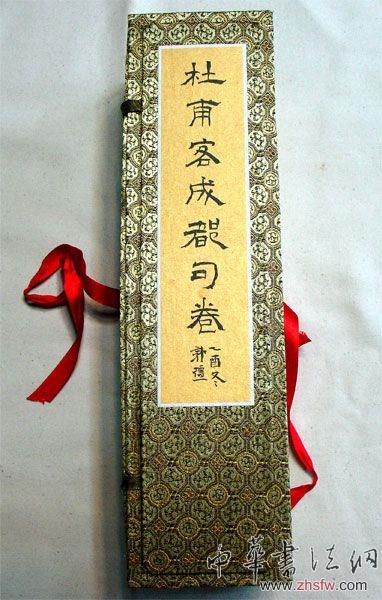 杜甫客成都句卷
乙酉冬
中華書法網
www.zhsfw.com